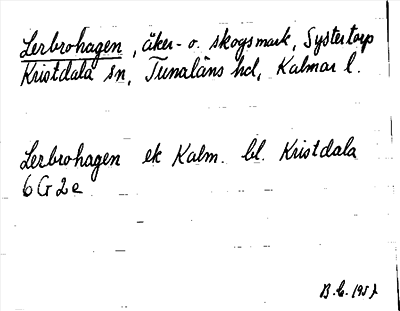 Lerbrohagen, åker- o. skogsmark, Systertorp
Kristdala sn, Tunaläns hd, Kalmar l.
Lerbrohagen ek Kalm. bl. Kristdala
6 G 2 e